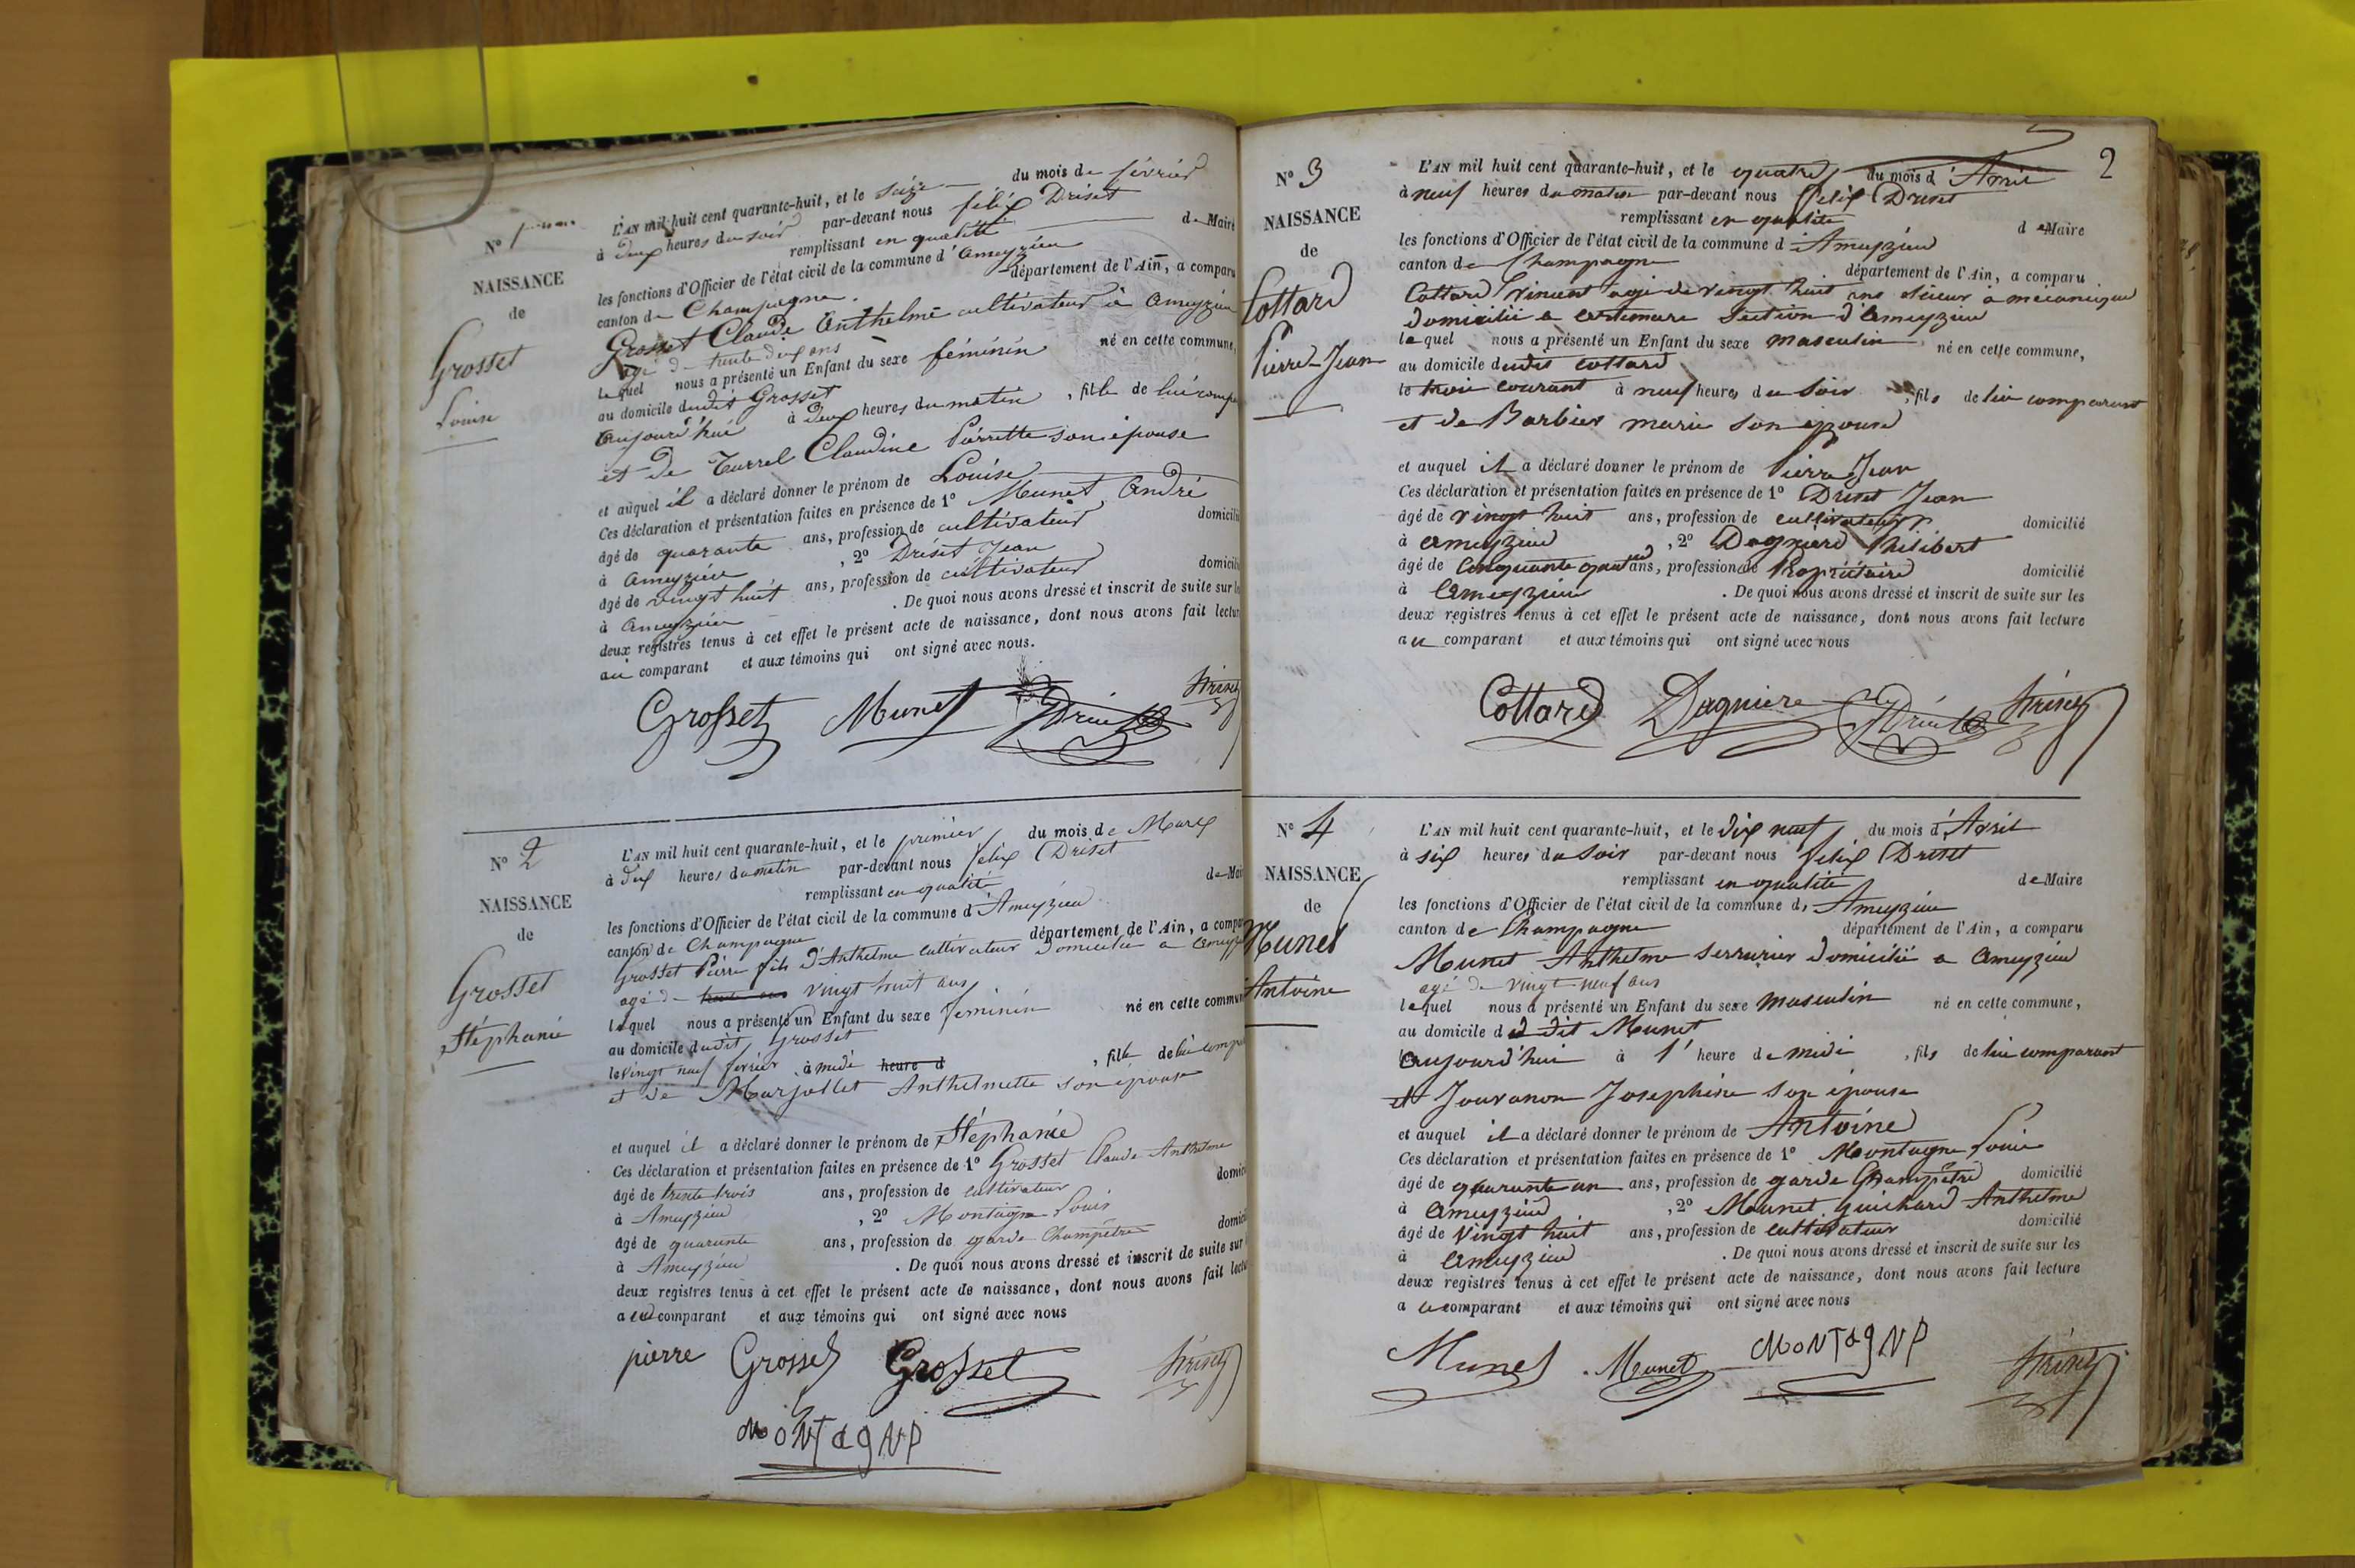 N°
NAISSANCE
de
Grosset
Louise
L'AN mil huit cent quarante-huit, et le seize du mois de février
à deux heures du soir par-devant nous félix Driset
remplissant en qualité de Maire
les fonctions d'Officier de l'état civil de la commune d'Ameyzieu
canton de Champagne. département de l'Ain, a comparu
Grosset Claude Anthelme cultivateur à Ameyzieu
agé de trente deux ans
lequel nous a présenté un Enfant du sexe féminin né en cette commune,
au domicile dudit Grosset
Aujourd'hui à deux heures du matin, fille de lui
et de Turrel Claudine Pierrette son épouse
et auquel il a déclaré donner le prénom de Louise
Ces déclaration et présentation faites en présence de 1° Munet André
âgé de quarante ans, profession de cultivateur
à Ameyzieu, 2° Driset Jean
âgé de vingt huit ans, profession de cultivateur
à Ameyzieu. De quoi nous avons dressé et inscrit de suite sur
deux registres tenus à cet effet le présent acte de naissance, dont nous avons fait
au comparant et aux témoins qui ont signé avec nous.
Grosset Munet Driset
N° 2
NAISSANCE
de
Grosset
Stéphanie
L'AN mil huit cent quarante-huit, et le premier du mois de Mars
à dix heures du matin par-devant nous félix Driset
remplissant en qualité de
les fonctions d'Officier de l'état civil de la commune d'Ameyzieu
canton de Champagne département de l'Ain, a
Grosset Pierre fils d'Anthelme cultivateur domicilié a
agé de vingt huit ans
lequel nous a présenté un Enfant du sexe féminin né en cette
au domicile dudit Grosset
le vingt neuf février à midi heure d, fille de lui
et de Marjollet Anthelmette son épouse
et auquel il a déclaré donner le prénom de Stéphanie
Ces déclaration et présentation faites en présence de 1° Grosset Claude Anthelme
âgé de trente trois ans, profession de cultivateur
à Ameyzieu, 2° Montagne Louis
âgé de quarante ans, profession de garde Champêtre
à Ameyzieu. De quoi nous avons dressé et inscrit de suite sur
deux registres tenus à cet effet le présent acte de naissance, dont nous avons fait
au comparant et aux témoins qui ont signé avec nous
pierre Grosset Grosset
MONTagNe
2
N° 3
NAISSANCE
de
Cottard
Pierre-Jean
L'AN mil huit cent quarante-huit, et le quatre du mois d'Avril
à neuf heures du matin par-devant nous félix Driset
remplissant en qualité de Maire
les fonctions d'Officier de l'état civil de la commune d'Ameyzieu
canton de Champagne département de l'Ain, a comparu
Cottard Vincent agé de vingt huit ans scieur à mécanique
domicilié a artemare section d'Ameyzieu
lequel nous a présenté un Enfant du sexe masculin né en cette commune,
au domicile dudit Cottard
le trois courant à neuf heures du soir, fils de lui comparant
et de Barbier marie son épouse
et auquel il a déclaré donner le prénom de Pierre Jean
Ces déclaration et présentation faites en présence de 1° Driset Jean
âgé de vingt huit ans, profession de cultivateur domicilié
à Ameyzieu, 2° Philibert
âgé de cinquante ans, profession de Propriétaire domicilié
à Ameyzieu. De quoi nous avons dressé et inscrit de suite sur les
deux registres tenus à cet effet le présent acte de naissance, dont nous avons fait lecture
au comparant et aux témoins qui ont signé avec nous
Cottard Dagniere Driset
N° 4
NAISSANCE
de
Munet
Antoine
L'AN mil huit cent quarante-huit, et le dix neuf du mois d'Avril
à six heures du soir par-devant nous félix Driset
remplissant en qualité de Maire
les fonctions d'Officier de l'état civil de la commune d'Ameyzieu
canton de Champagne département de l'Ain, a comparu
Munet Anthelme serrurier domicilié a Ameyzieu
agé de vingt neuf ans
lequel nous a présenté un Enfant du sexe masculin né en cette commune,
au domicile dudit Munet
Aujourd'hui à 1 heure de midi, fils de lui comparant
et Jouvanon Josephine son épouse
et auquel il a déclaré donner le prénom de Antoine
Ces déclaration et présentation faites en présence de 1° Montagne Louis
âgé de quarante un ans, profession de garde Champêtre domicilié
à Ameyzieu, 2° Munet Guichard Anthelme
âgé de vingt huit ans, profession de cultivateur domicilié
à Ameyzieu. De quoi nous avons dressé et inscrit de suite sur les
deux registres tenus à cet effet le présent acte de naissance, dont nous avons fait lecture
au comparant et aux témoins qui ont signé avec nous
Munet Munet MONTagNe